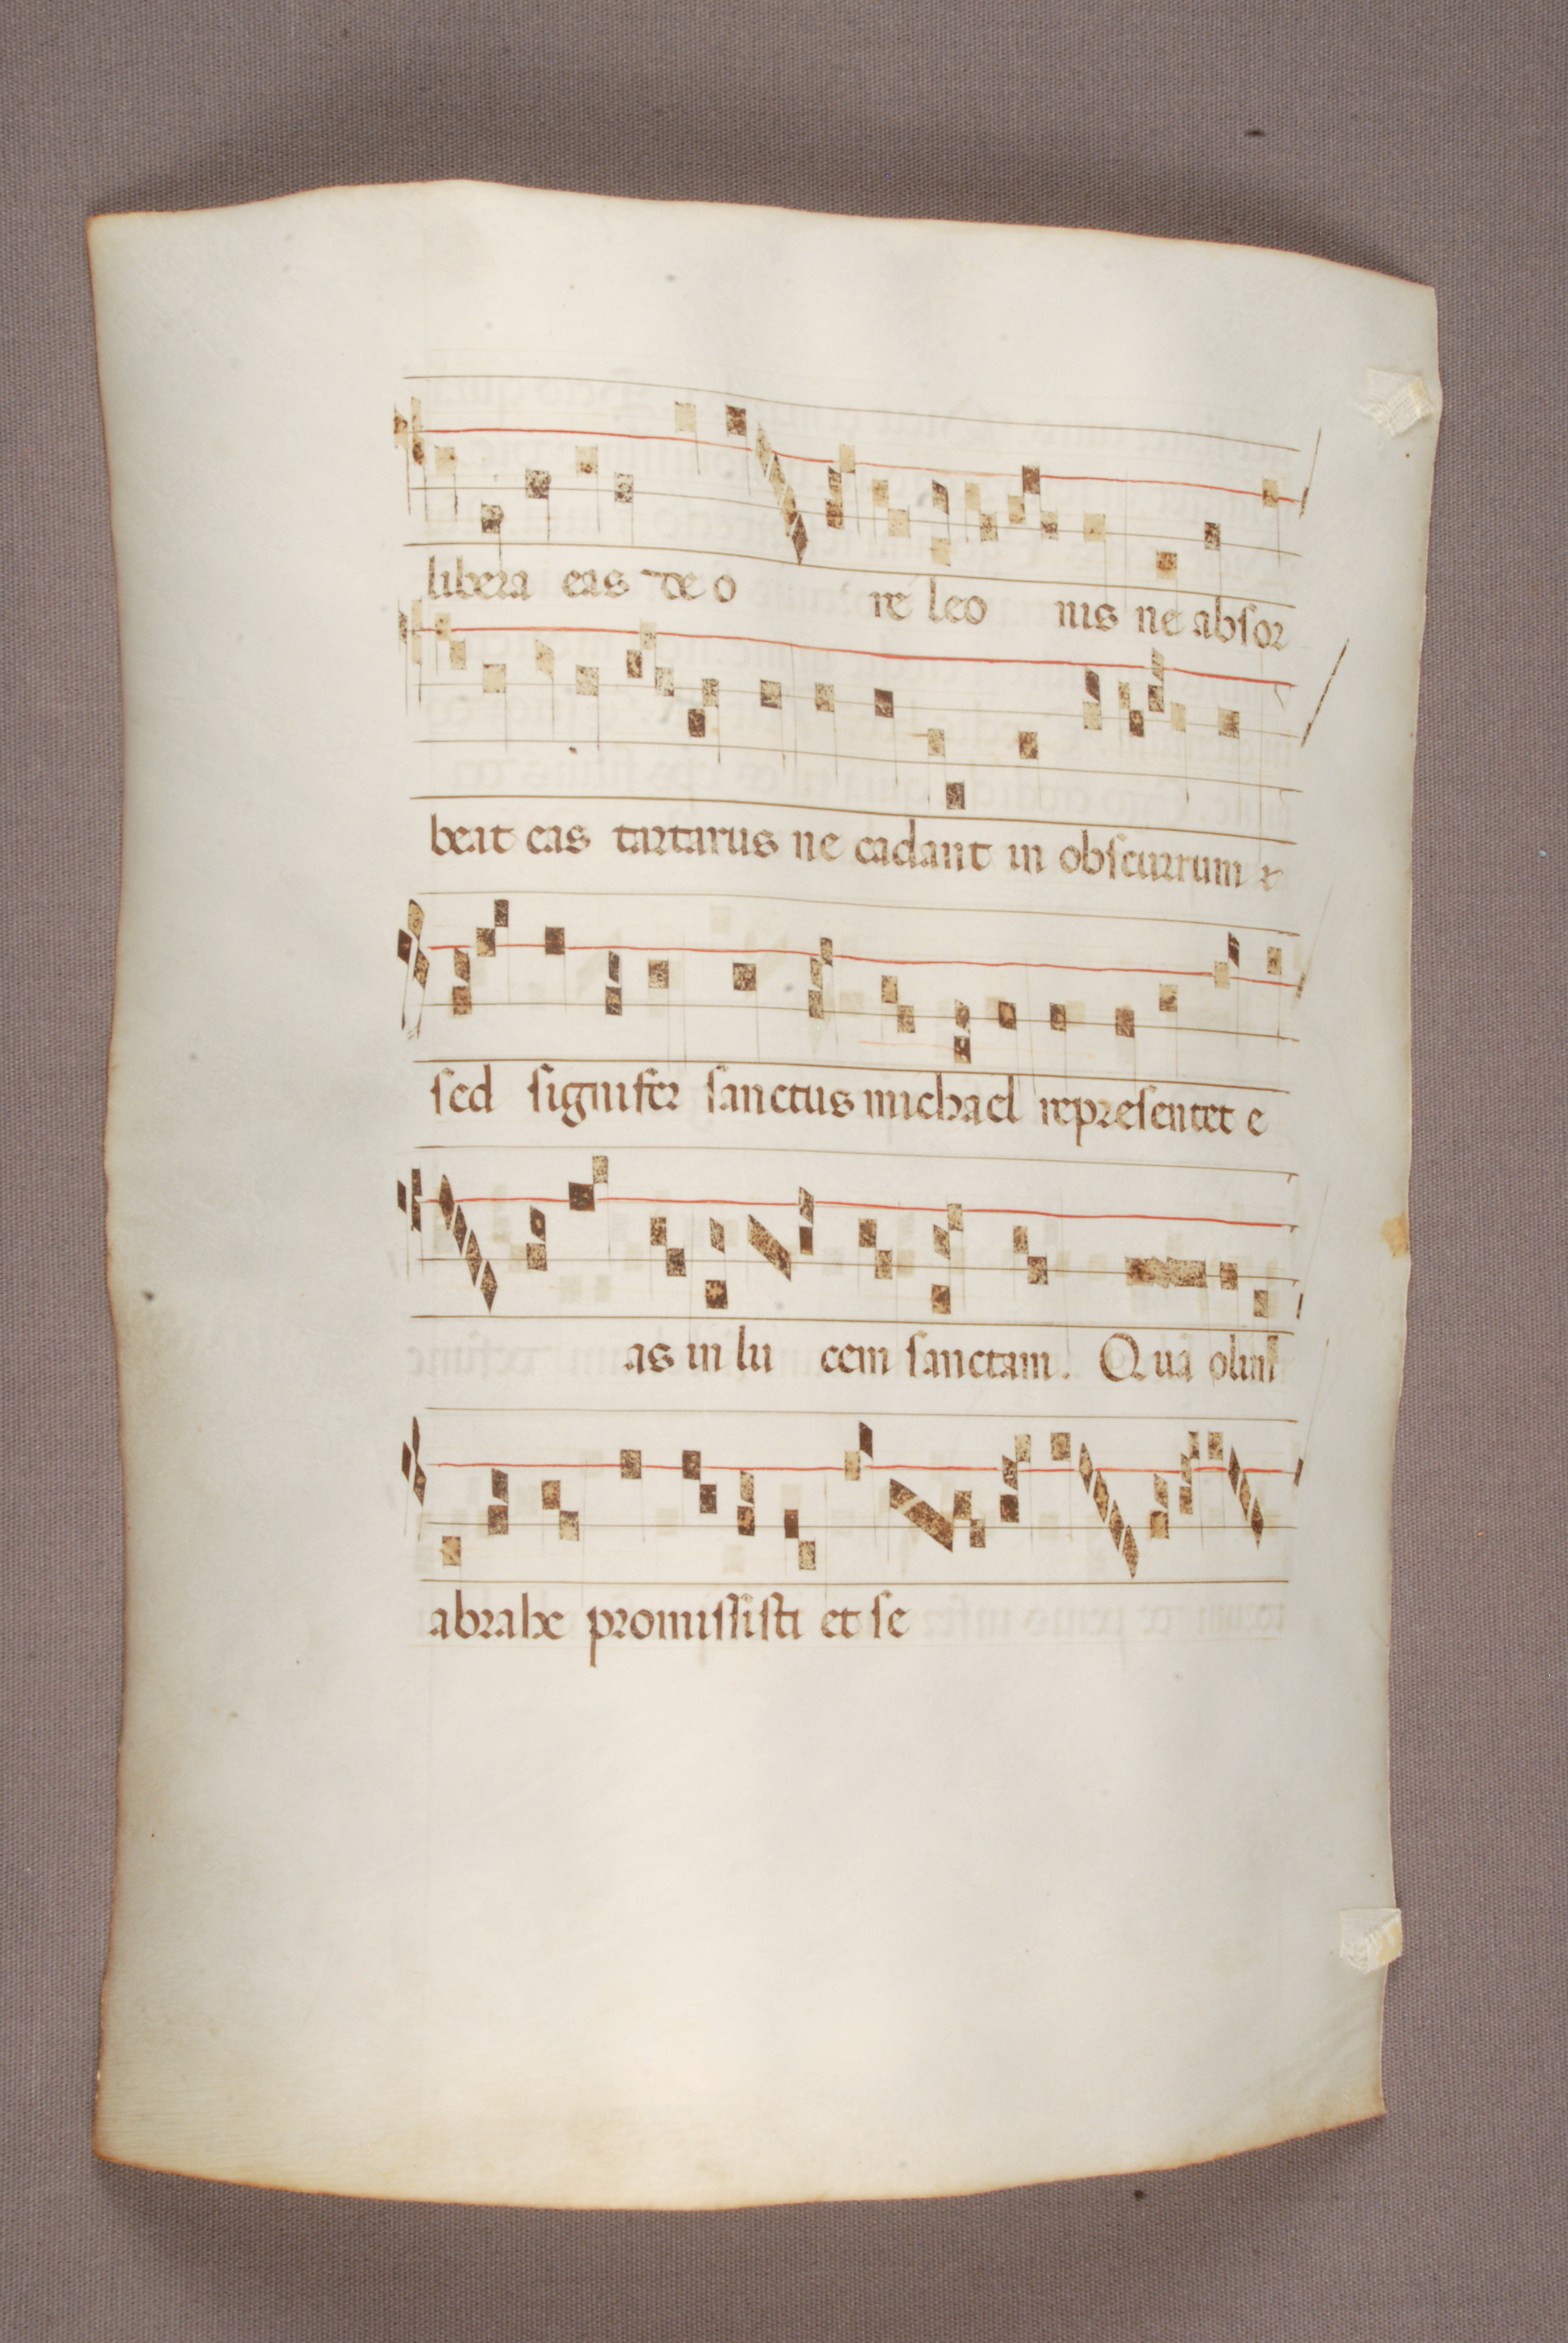 libera eas de o re leo nis ne absor
beat eas tartarus ne cadant in obscurrum
sed signifer sanctus michael representet e
as in lu cem sanctam. Qua olim
abrahe promissisti et se